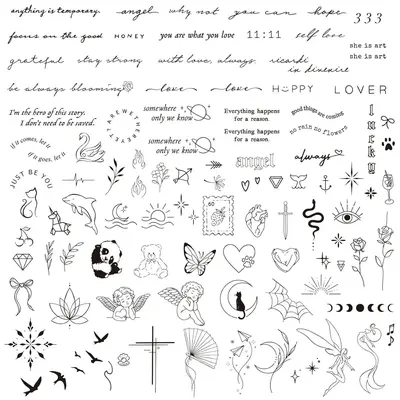 anything is temporary.
angel
why not
you can
hope
333
focus on the good
HONEY
you are what you love
11:11
self love
she is art
she is art
grateful
stay strong
with love, always.
ricardi
in divenire
be always blooming
love
love
HAPPY
LOVER
I'm the hero of this story.
I don't need to be saved.
somewhere
only we know
Everything happens
for a reason.
good things are coming
no rain no flowers
lucky
if it comes, let it
if it goes, let it
somewhere
only we know
Everything happens
for a reason.
angel
always
JUST BE YOU